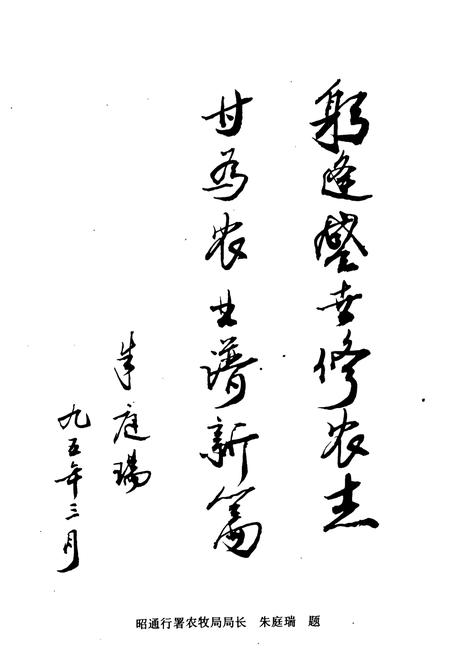 躬逢盛世修农志
甘为农业谱新篇
朱庭瑞
九五年三月
昭通行署农牧局局长 朱庭瑞 题